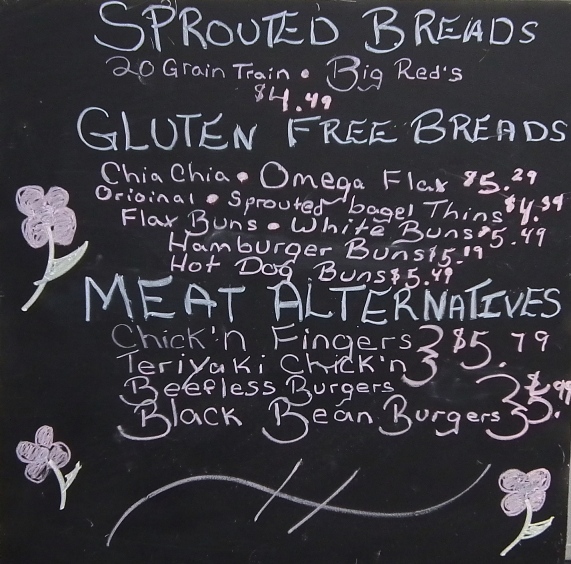 SPROUTED BREADS
20 Grain Train • Big Red's
$4.49
GLUTEN FREE BREADS
Chia Chia • Omega Flax $5.29
Original • Sprouted bagel Thins $4.39
Flax Buns • White Buns $5.49
Hamburger Buns $5.19
Hot Dog Buns $5.49
MEAT ALTERNATIVES
Chick'n Fingers } $5.79
Teriyaki Chick'n
Beefless Burgers
Black Bean Burgers